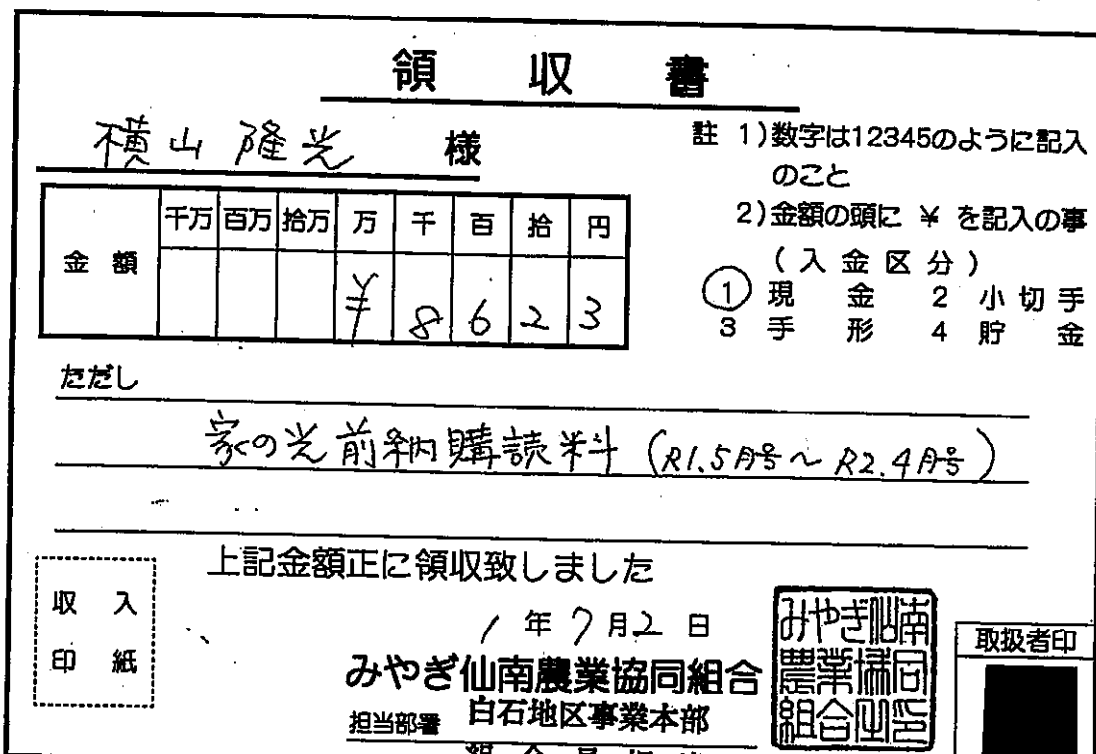 領収書
横山隆光 様
註 1)数字は12345のように記入
のこと
2)金額の頭に ¥ を記入の事
(入金区分)
① 現金 2 小切手
3 手形 4 貯金
金額 千万 百万 拾万 万 千 百 拾 円
¥ 8 6 2 3
ただし
家の光前納購読料 (R1.5月号~R2.4月号)
上記金額正に領収致しました
収入
印紙
1年7月2日
みやぎ仙南農業協同組合
担当部署 白石地区事業本部
みやぎ仙南
農業協同
組合
取扱者印